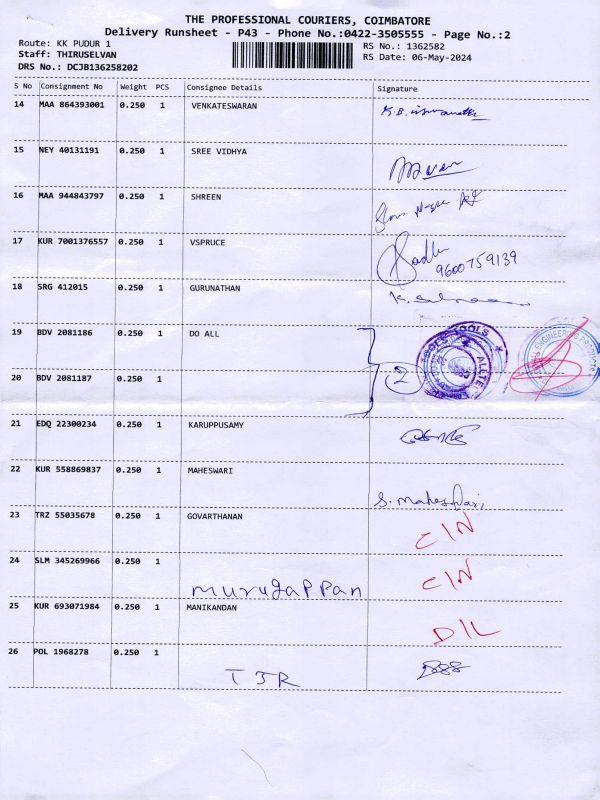 THE PROFESSIONAL COURIERS, COIMBATORE
Delivery Runsheet - P43 - Phone No.:0422-3505555 - Page No.:2
Route: KK PUDUR 1 RS No.: 1362582
Staff: THIRUSELVAN RS Date: 06-May-2024
DRS No.: DCJB136258202
S No Consignment No Weight PCS Consignee Details Signature
14 MAA 864393001 0.250 1 VENKATESWARAN
15 NEY 40131191 0.250 1 SREE VIDHYA
16 MAA 944843797 0.250 1 SHREEN
17 KUR 7001376557 0.250 1 VSPRUCE
9600759139
18 SRG 412015 0.250 1 GURUNATHAN
19 BDV 2081186 0.250 1 DO ALL
20 BDV 2081187 0.250 1 2
21 EDQ 22300234 0.250 1 KARUPPUSAMY
22 KUR 558869837 0.250 1 MAHESWARI
S. maheswari
23 TRZ 55035678 0.250 1 GOVARTHANAN C/N
24 SLM 345269966 0.250 1 C/N
murugappan
25 KUR 693071984 0.250 1 MANIKANDAN
D/L
26 POL 1968278 0.250 1
TJR